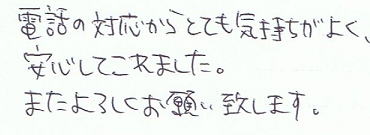 電話の対応からとても気持ちがよく、
安心してこれました。
またよろしくお願い致します。